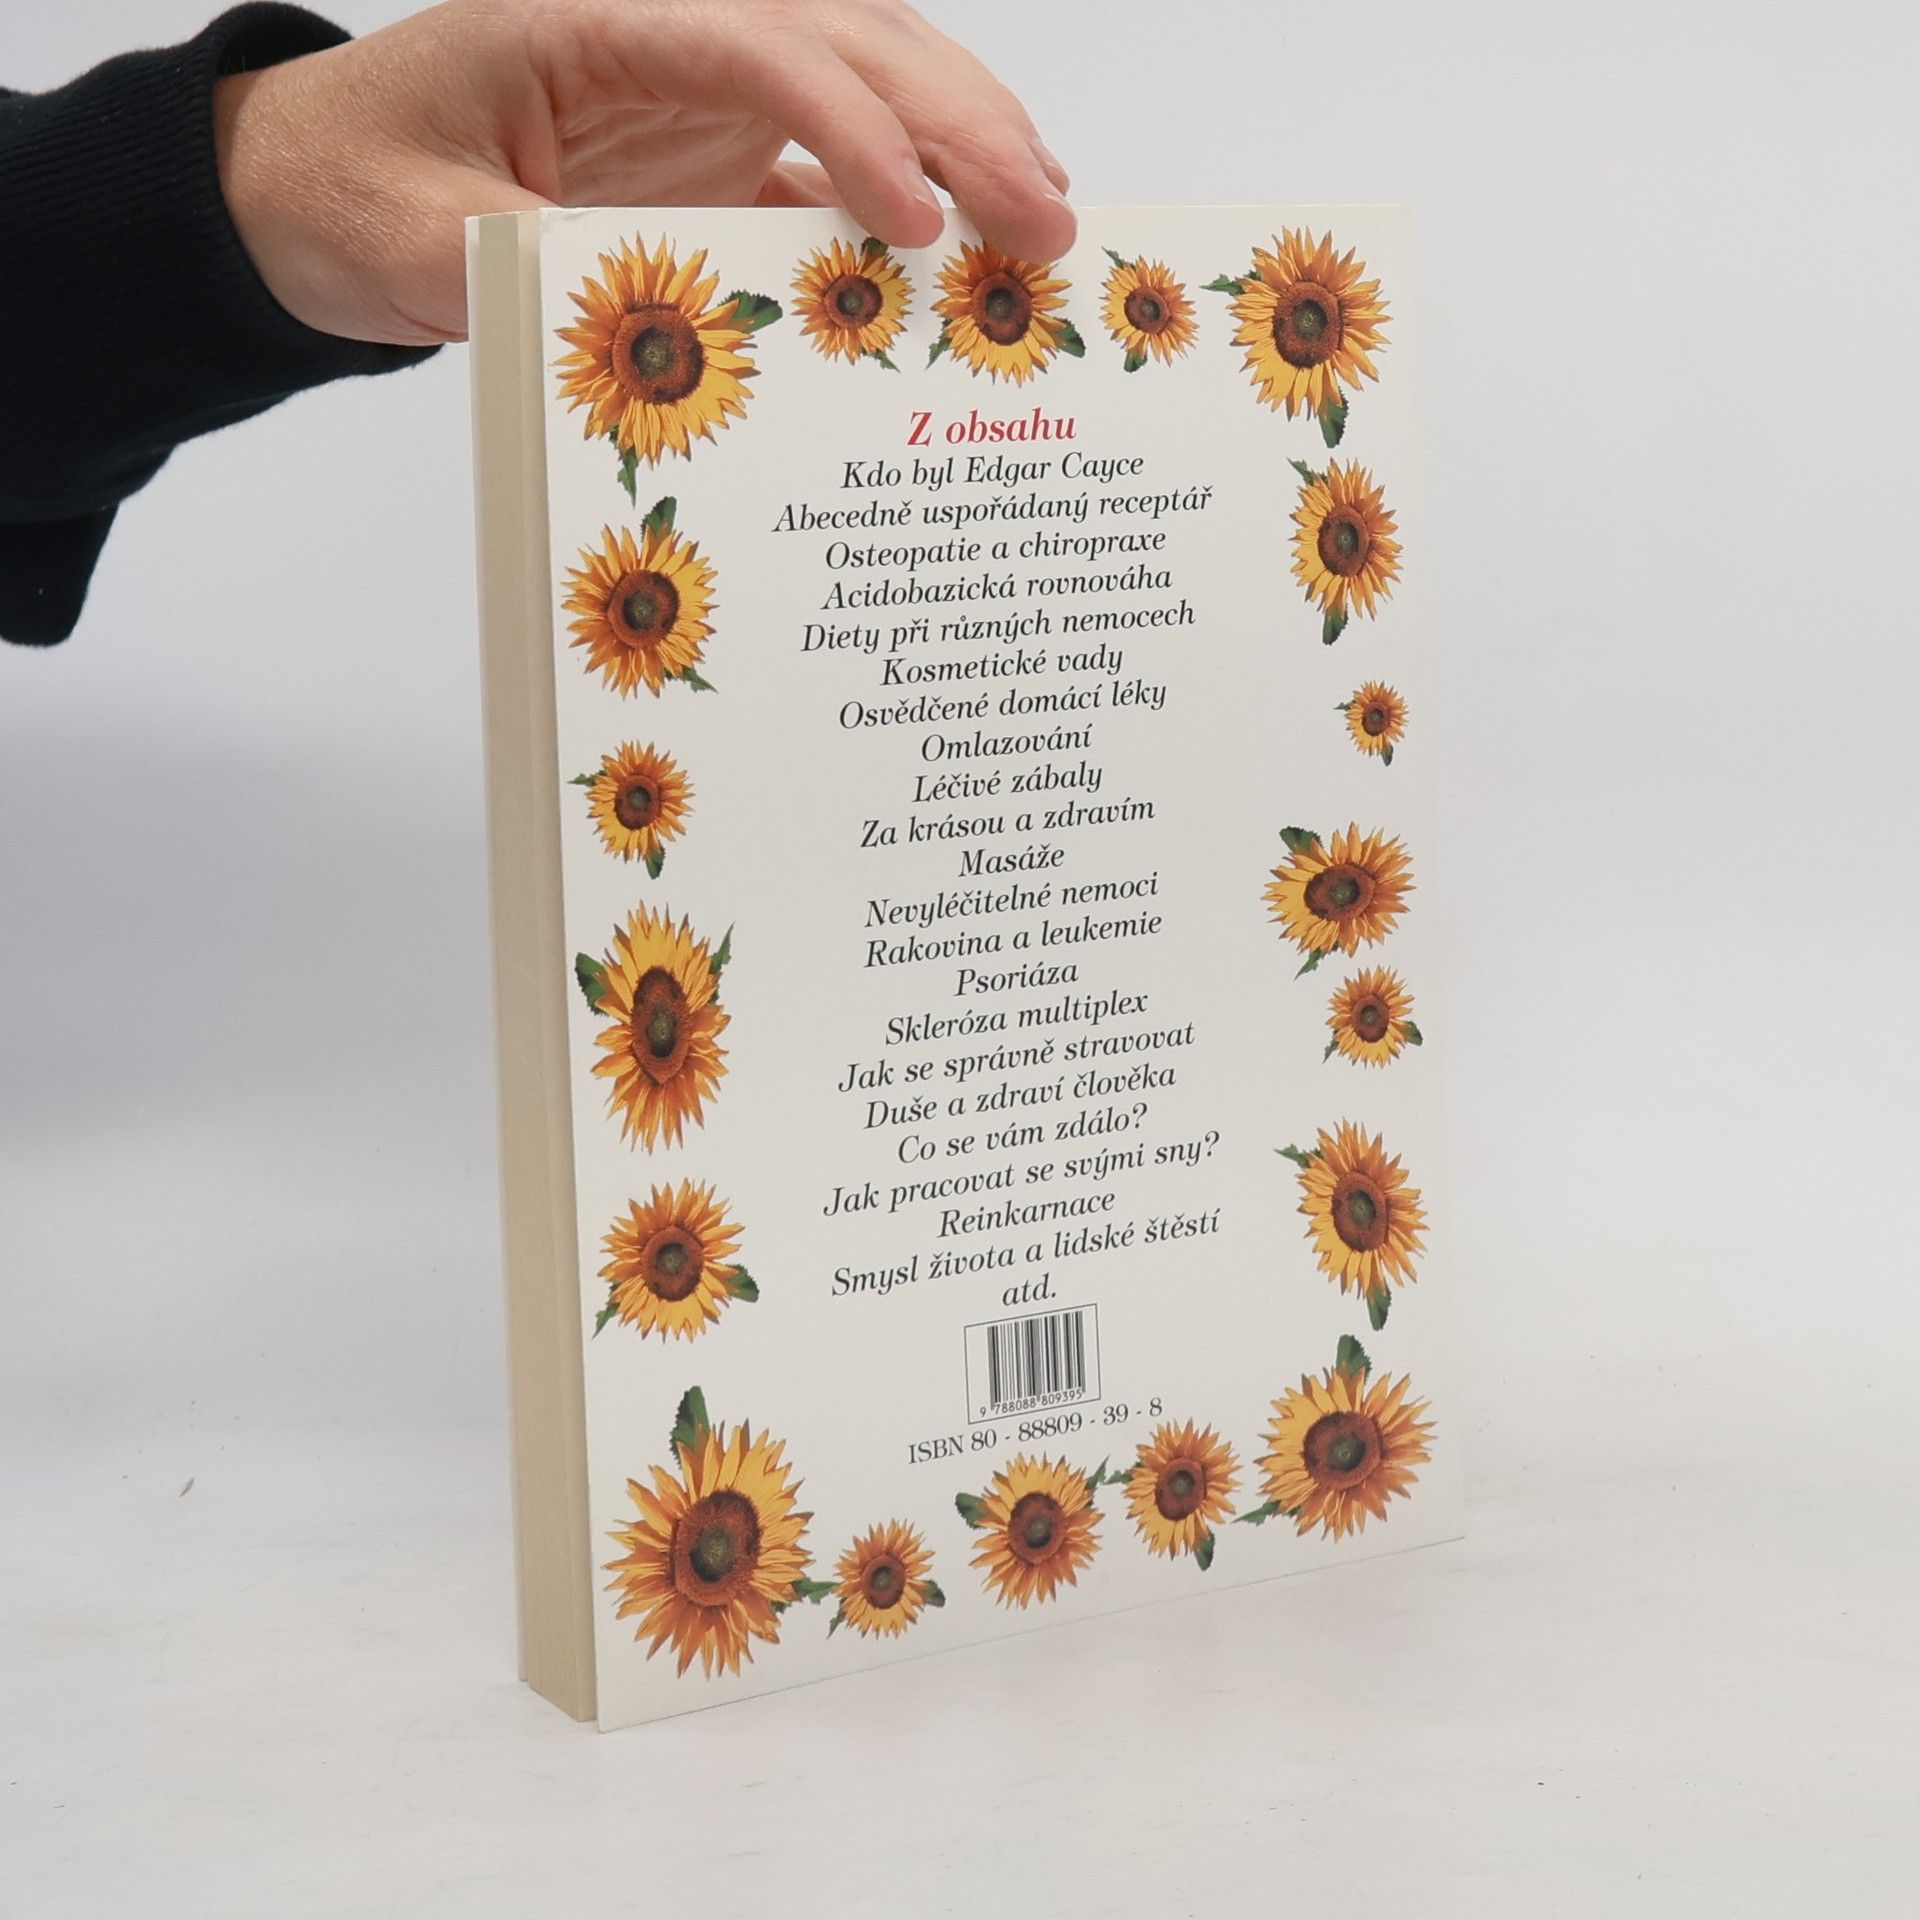 Z obsahu
Kdo byl Edgar Cayce
Abecedně uspořádaný receptář
Osteopatie a chiropraxe
Acidobazická rovnováha
Diety při různých nemocech
Kosmetické vady
Osvědčené domácí léky
Omlazování
Léčivé zábaly
Za krásou a zdravím
Masáže
Nevyléčitelné nemoci
Rakovina a leukemie
Psoriáza
Skleróza multiplex
Jak se správně stravovat
Duše a zdraví člověka
Co se vám zdálo?
Jak pracovat se svými sny?
Reinkarnace
Smysl života a lidské štěstí
atd.
9 788088 809395
ISBN 80 - 88809 - 39 - 8